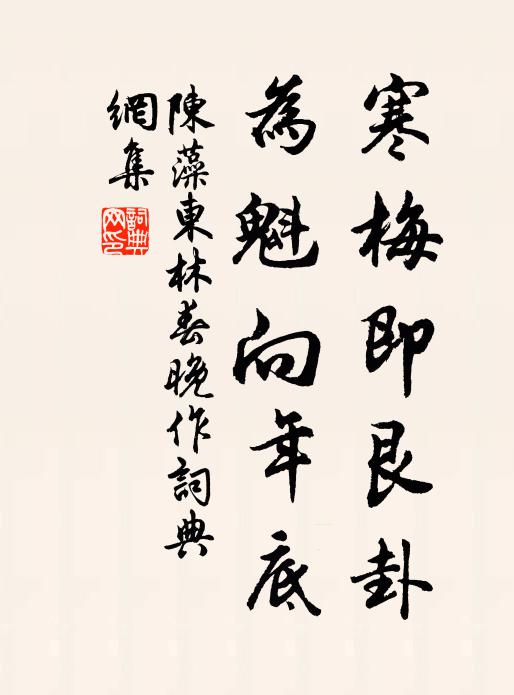 寒梅即艮卦
為魁向年底
陳藻東林春晚作詞典
網集
詞典網印